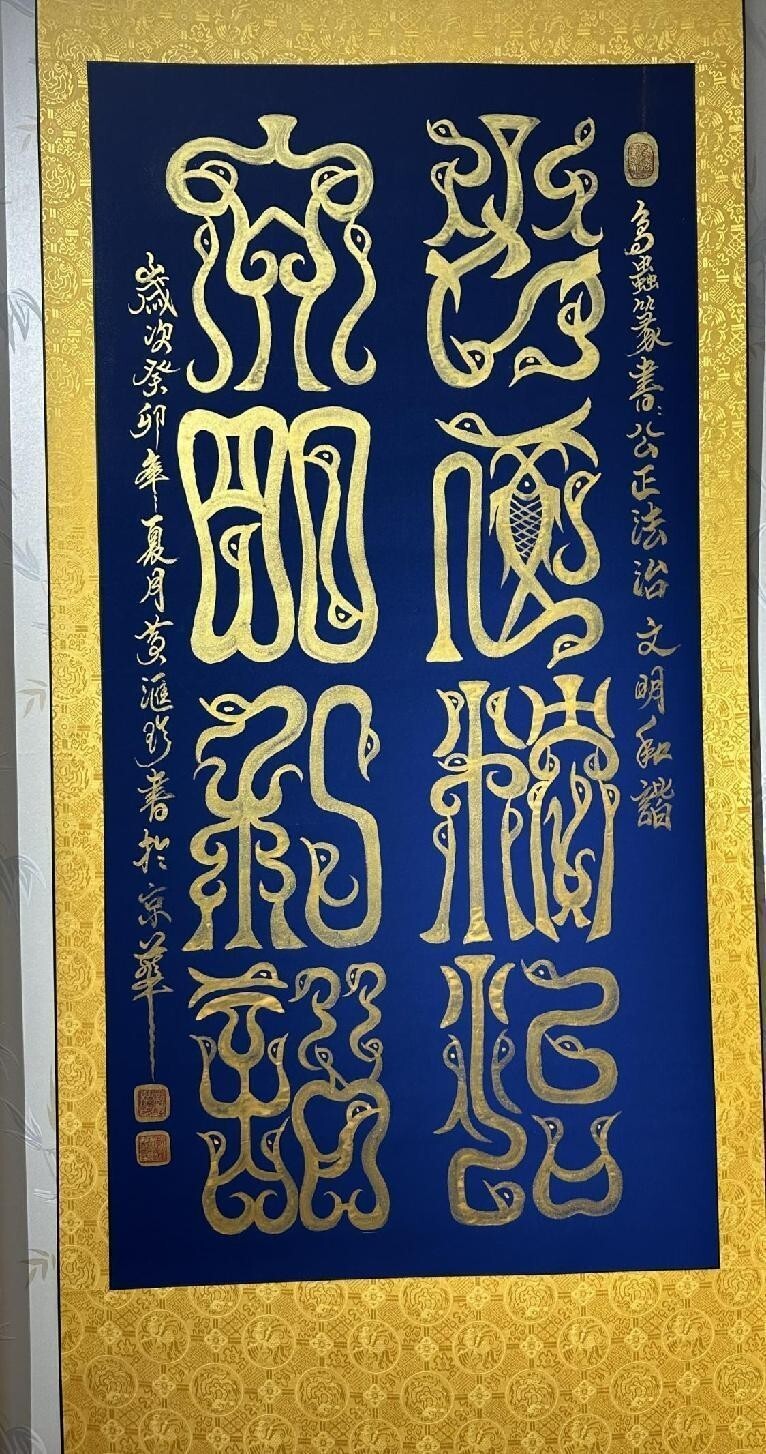 鳥蟲篆書：公正法治 文明和諧
公正法治
文明和諧
歲次癸卯年夏月黃滙珍書於京華